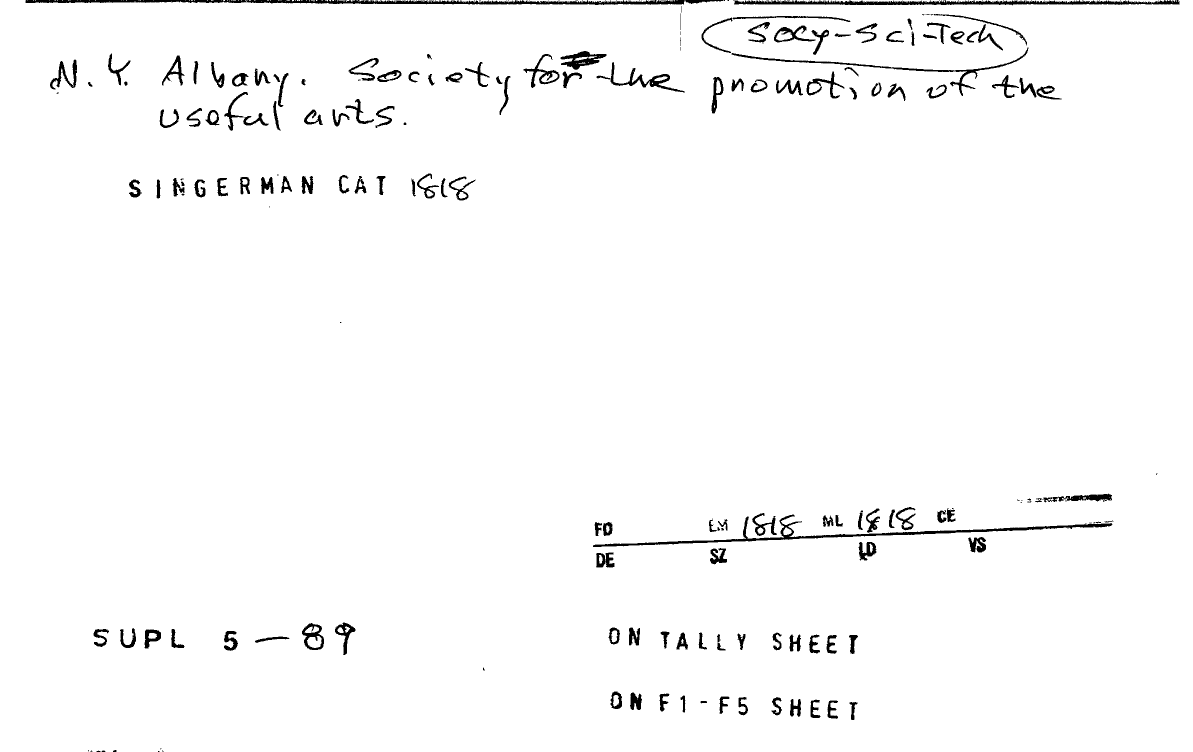 Socy-Sci-Tech
N.Y. Albany. Society for the promotion of the
useful arts.
SINGERMAN CAT 1818
FO EM 1818 ML 1818 CE
DE SZ LD VS
SUPL 5-89
ON TALLY SHEET
ON F1-F5 SHEET